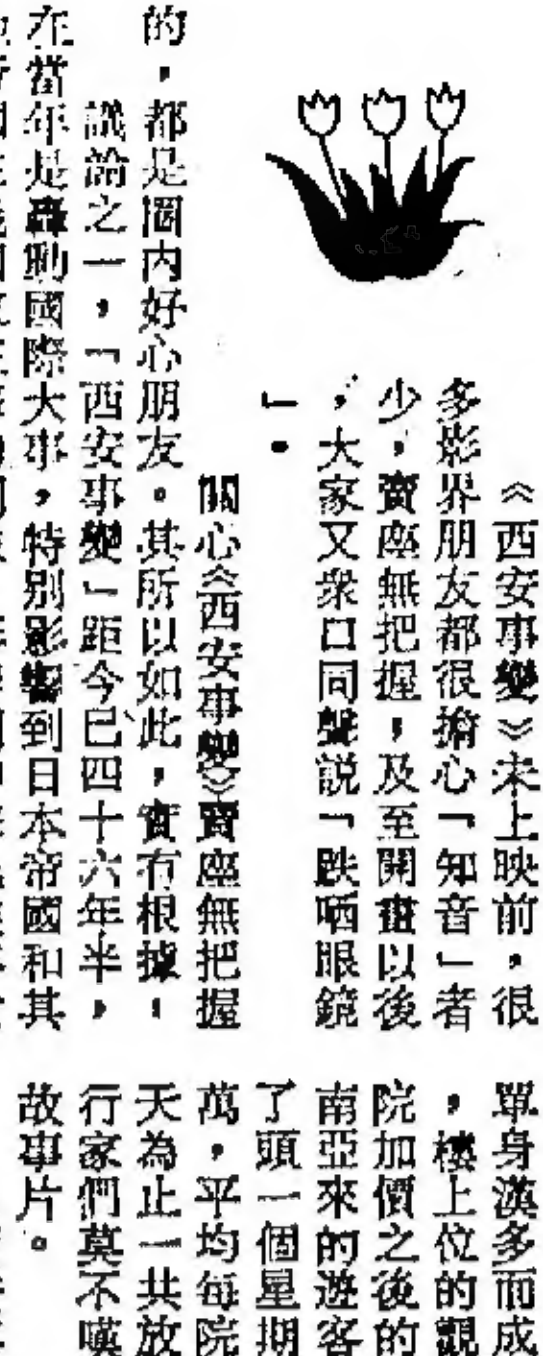 《西安事變》未上映前，很
多影界朋友都很擔心「知音」者
少，賣座無把握，及至開畫以後
，大家又衆口同聲説「跌哂眼鏡
」。
關心《西安事變》賣座無把握
的，都是圈内好心朋友。其所以如此，實有根據，
議論之一，「西安事變」距今已四十六年半，
在當年是轟動國際大事，特别影響到日本帝國和其
單身漢多而成
，樓上位的觀
院加價之後的
南亞來的遊客
了頭一個星期
萬，平均每院
天為止一共放
行家們莫不嘆
故事片。